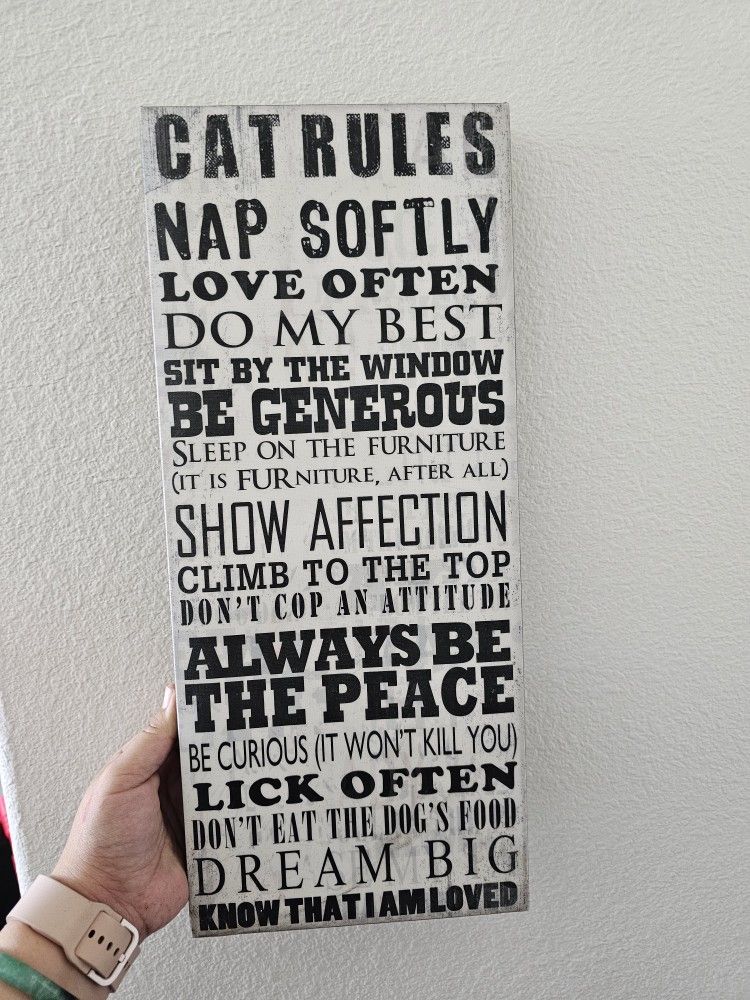 CAT RULES
NAP SOFTLY
LOVE OFTEN
DO MY BEST
SIT BY THE WINDOW
BE GENEROUS
SLEEP ON THE FURNITURE
(IT IS FURNITURE, AFTER ALL)
SHOW AFFECTION
CLIMB TO THE TOP
DON'T COP AN ATTITUDE
ALWAYS BE
THE PEACE
BE CURIOUS (IT WON'T KILL YOU)
LICK OFTEN
DON'T EAT THE DOG'S FOOD
DREAM BIG
KNOW THAT I AM LOVED